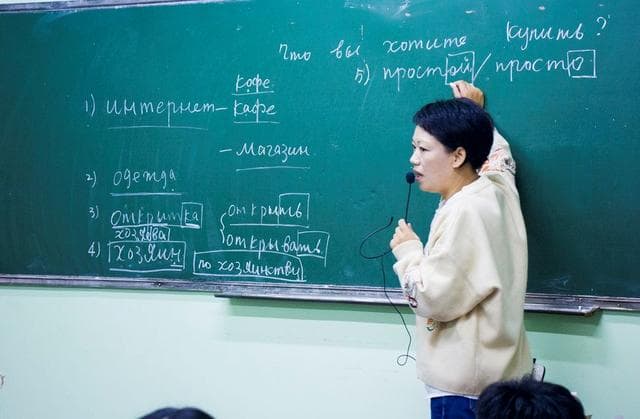 Что вы хотите купить?
5) простой / просто
кофе
1) интернет - кафе
- Магазин
2) одежда
3) открытка
открыть
хозяева
открывать
4) хозяин
по хозяинству